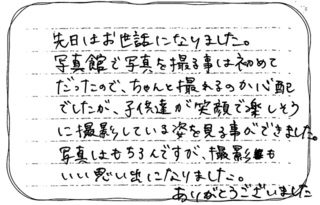 先日はお世話になりました。
写真館で写真を撮る事は初めて
だったので、ちゃんと撮れるのか心配
でしたが、子供達が笑顔で楽しそう
に撮影している姿を見る事ができました。
写真はもちろんですが、撮影も
いい思い出になりました。
ありがとうございました